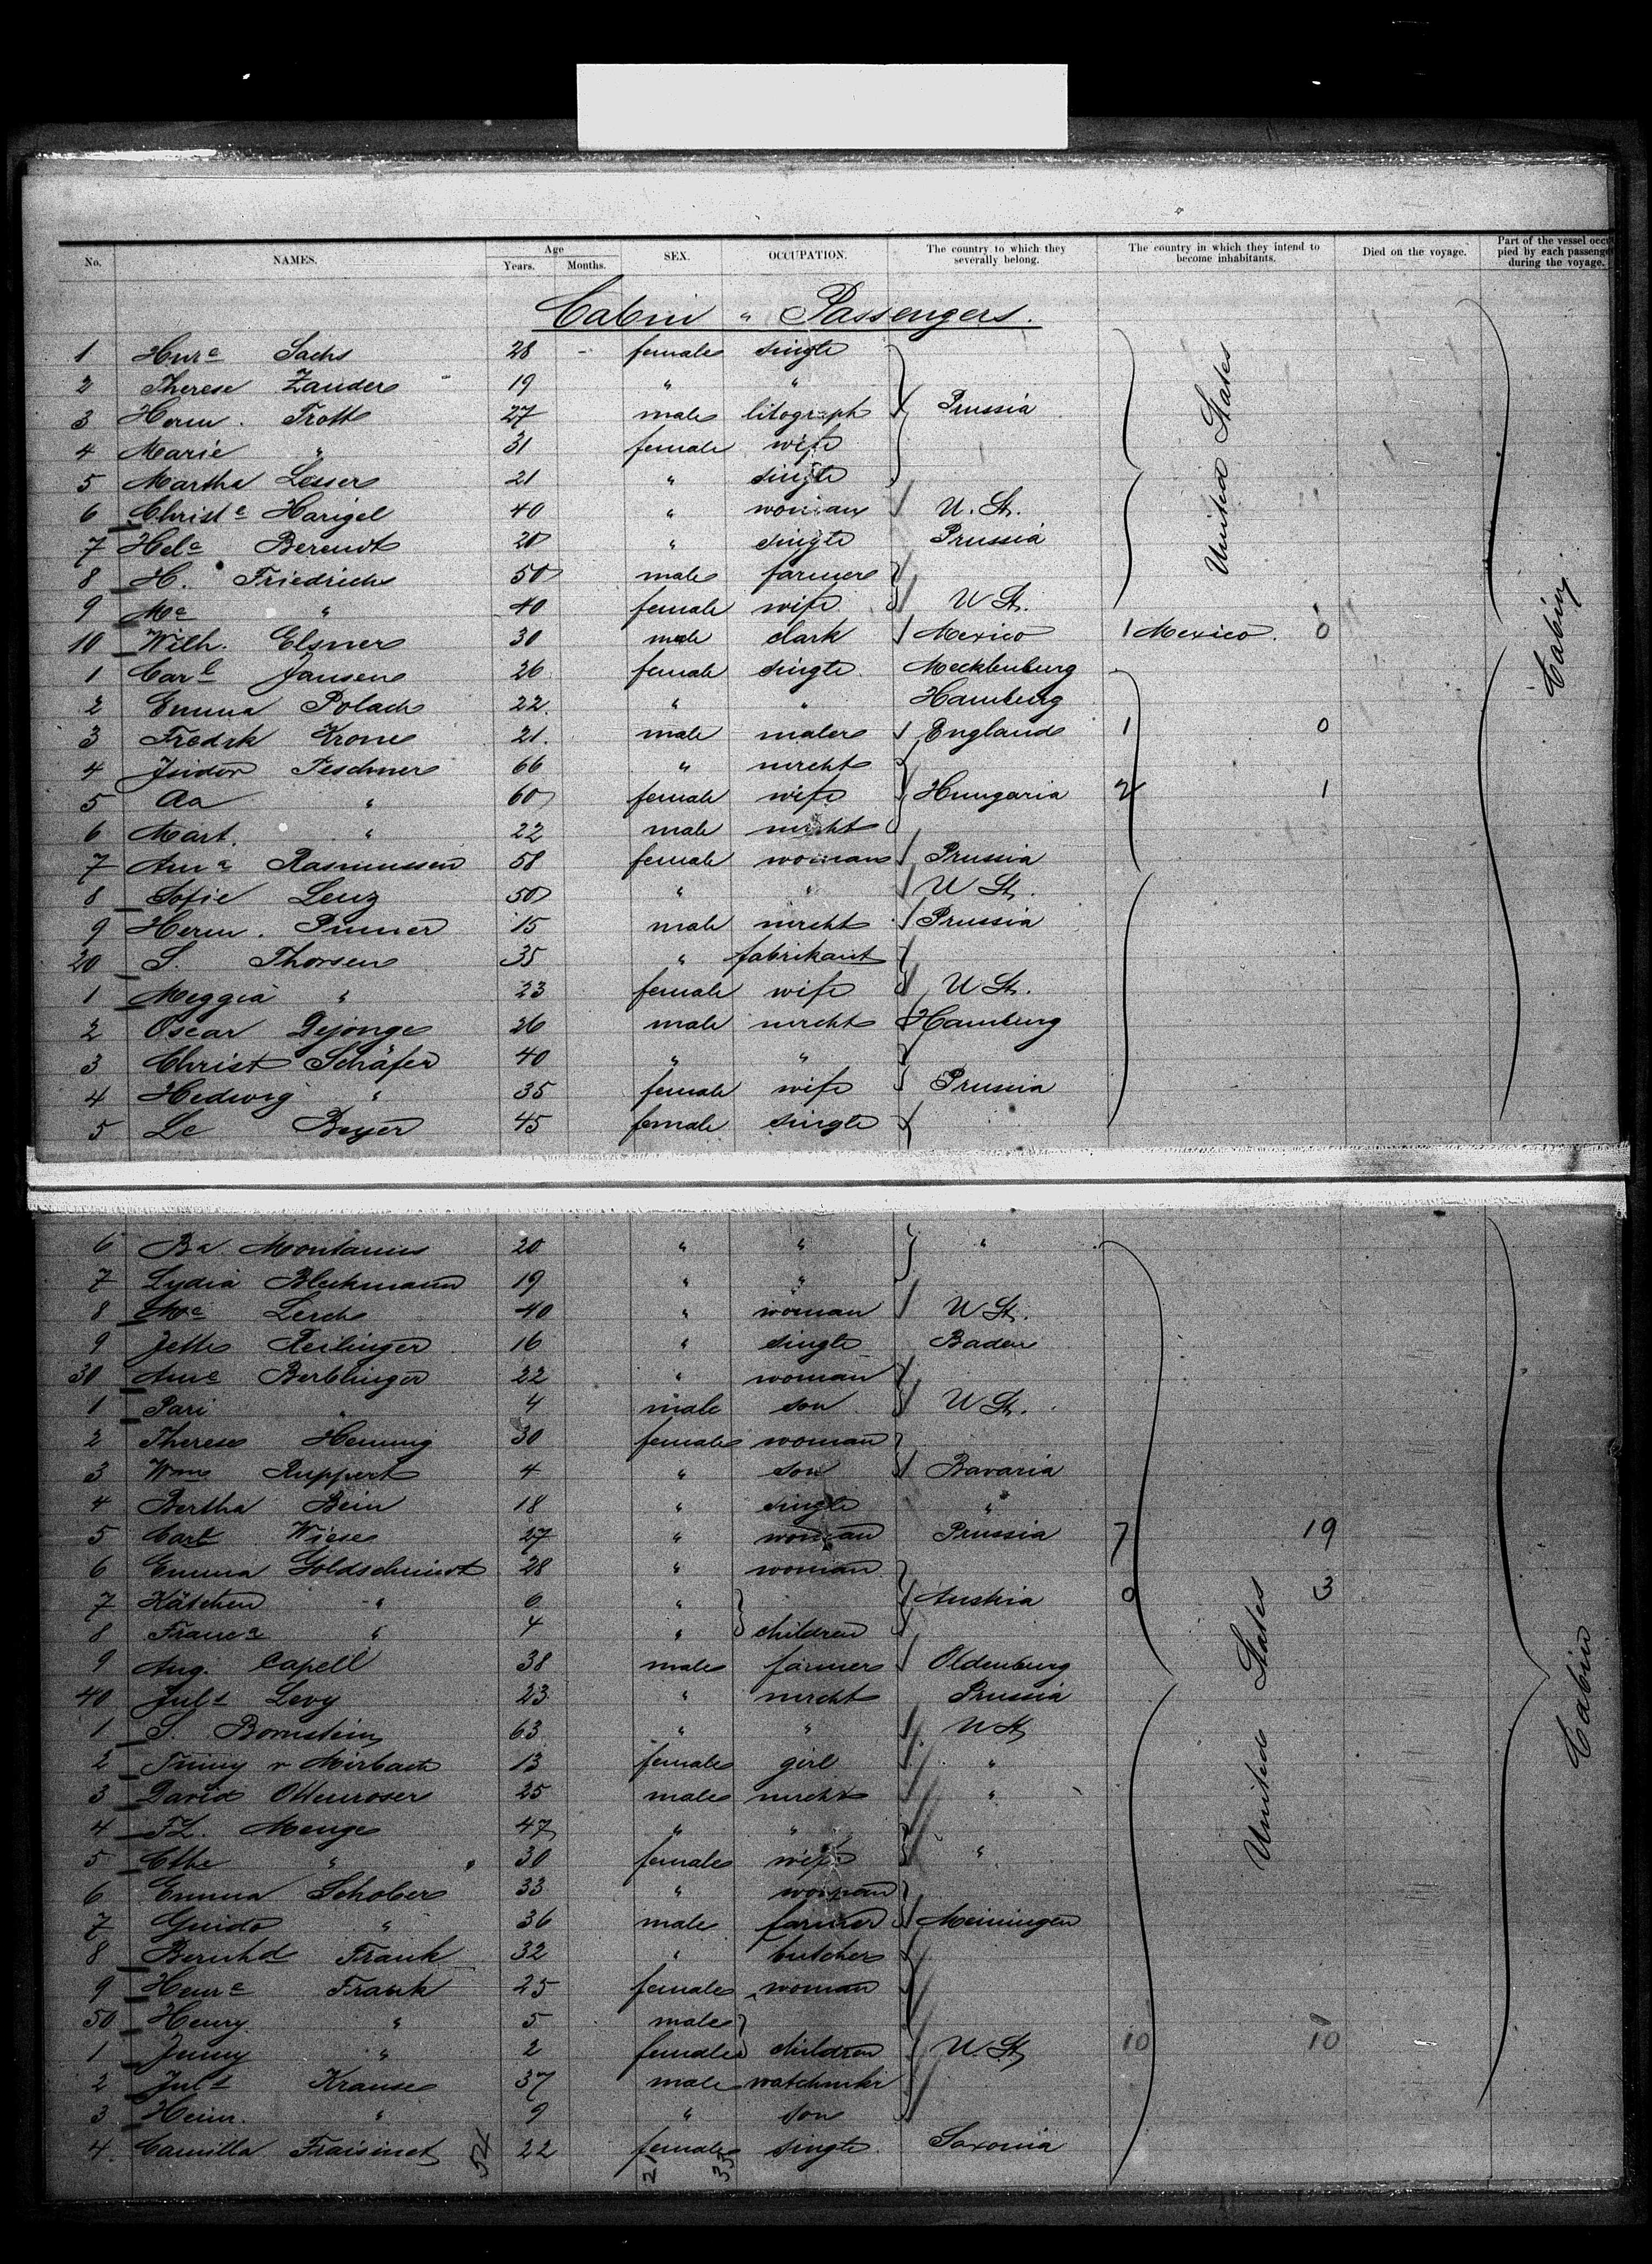 No. NAMES. Age Years. Months. SEX. OCCUPATION. The country to which they severally belong. The country in which they intend to become inhabitants. Died on the voyage. Part of the vessel occupied by each passenger during the voyage.
Cabin " Passengers.
1 Hnre Sachs 28 - female single
2 Therese Zander 19 " "
3 Herm. Trott 27 male litograph Prussia
4 Marie " 31 female wife
5 Martha Lesser 21 " single
6 Christe Harigel 40 " woman U. St.
7 Hele Berendt 20 " single Prussia
8 H. Friedrich 50 male farmer
9 Me " 40 female wife U St.
United States
10 Wilh. Elsner 30 male clark Mexico 1 Mexico. 0
1 Carl Jansen 26 female single Mecklenburg
2 Emma Polack 22. " " Hamburg
3 Fredrk Krone 21. male maler England 1 0
4 Isidor Teschner 66 " mercht
5 Aa " 60 female wife Hungaria 2 1
6 Mart. " 22 male mercht
7 Anna Rasmussen 58 female woman Prussia
8 Sofie Lenz 50 " " U St.
9 Herm. Pinner 15 male mercht Prussia
20 S. Thorsen 35 " fabrikant
1 Meggia " 23 female wife U St.
2 Oscar Dejonge 26 male mercht Hamburg
3 Christ Schäfer 40 " "
4 Hedwig " 35 female wife Prussia
5 Le Beyer 45 female single
Cabin
6 Ba Montanus 20 " " "
7 Lydia Bleckmann 19 " "
8 Me Lerch 40 " woman U St.
9 Jette Reilinger 16 " single Baden
30 Anne Berblinger 22 " woman
1 Pari " 4 male son U St.
2 Therese Henning 30 female woman
3 Wm Ruppert 4 " son Bavaria
4 Bertha Bein 18 " single "
5 Carl Wiese 27 " woman Prussia 7 19
6 Emma Goldschmidt 28 " woman
7 Kätchen " 6 " Austria 0 3
8 Franca " 4 " children
9 Aug. Capell 38 male farmer Oldenburg
40 Juls Levy 23 " mercht Prussia
1 S. Bornstein 63 " " U St
2 v Mirbach 13 female girl "
3 David Ottenroser 25 male mercht "
4 Menge 47 " "
5 " 30 female wife "
6 Emma Schober 33 " woman
7 Guido " 36 male farmer Meiningen
8 Bernhd Frank 32 " butcher
9 Henre Frank 25 female woman
50 Henry " 5 male
1 Jenny " 2 female children U. St 10 10
2 Juls Krause 37 male watchmkr
3 Heinr. " 9 " son
4. Camilla Fraisinet 22 female single Saxonia
United States
Cabin
54 21 33